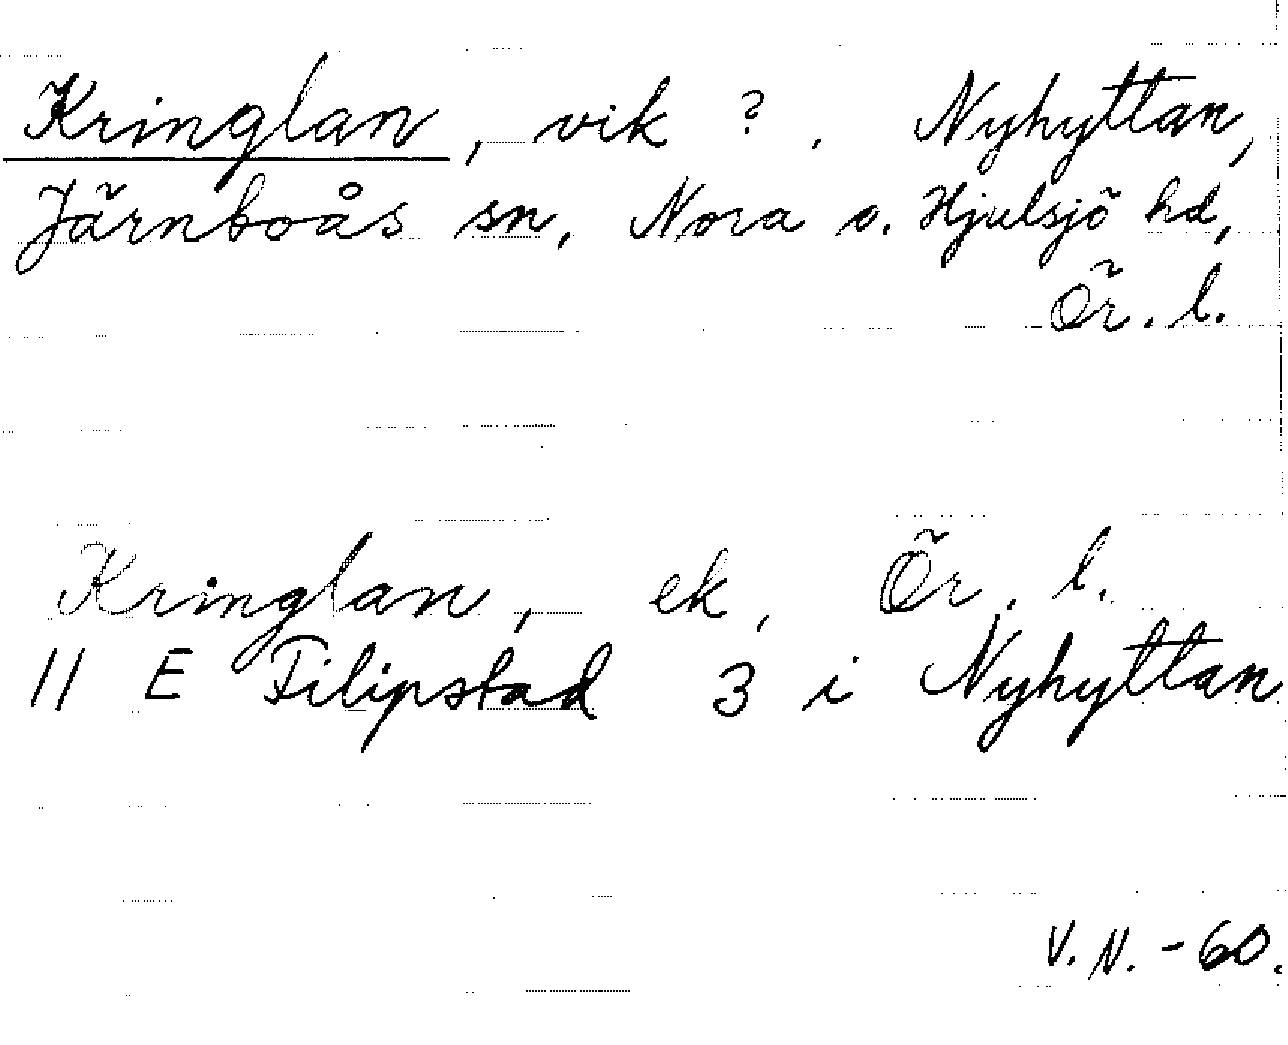 Kringlan, vik ?. Nyhyttan,
Järnboås sn, Nora o. Hjulsjö hd,
Ör. l.
Kringlan, ek, Ör. l.
11 E Filipstad 3 i Nyhyttan
V. N. -60.